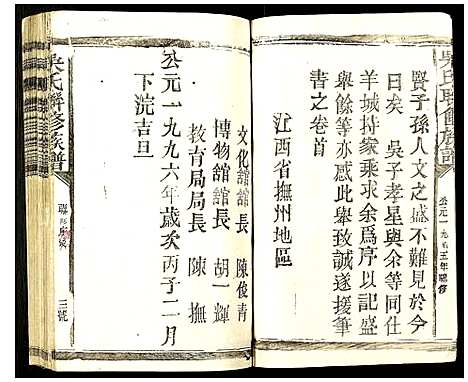 吳氏聯修族譜
公元一九九五年聯修
賢子孫人文之盛不難見於今
日矣 吳子孝星與余等同仕
羊城持家乘求余爲序以記盛
舉余等亦感此舉致誠遂援筆
書之卷首
江西省撫州地區
文化館館長 陳俊青
博物館館長 胡一輝
教育局局長 陳撫
公元一九九六年歲次丙子二月
下浣吉旦
吳氏聯修族譜
三號